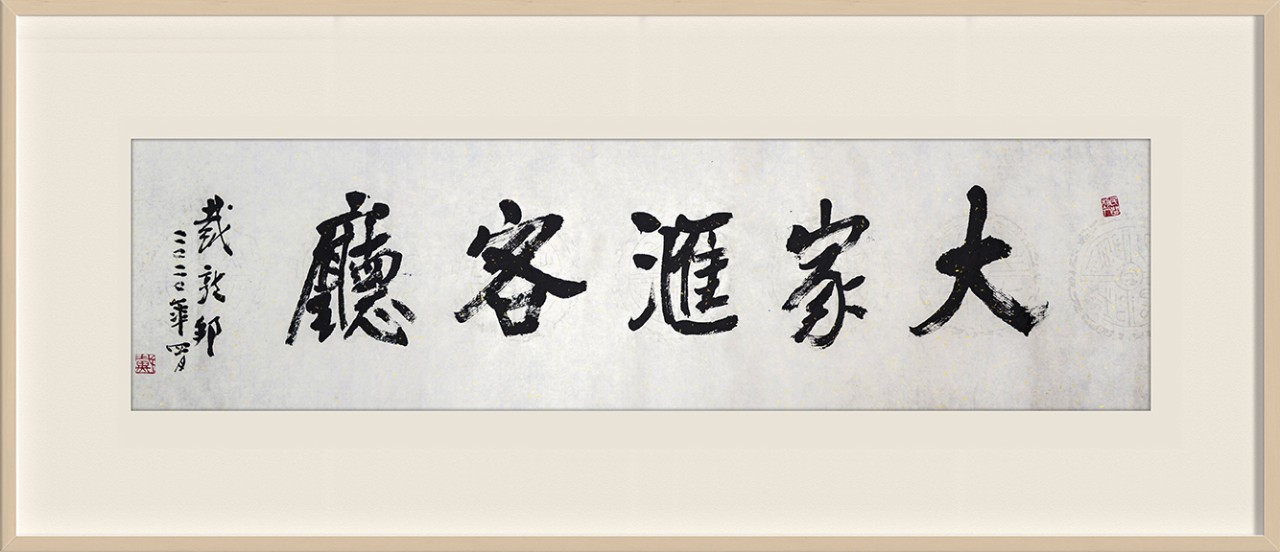 大家滙客廳
戴敦邦
二〇二〇年四月